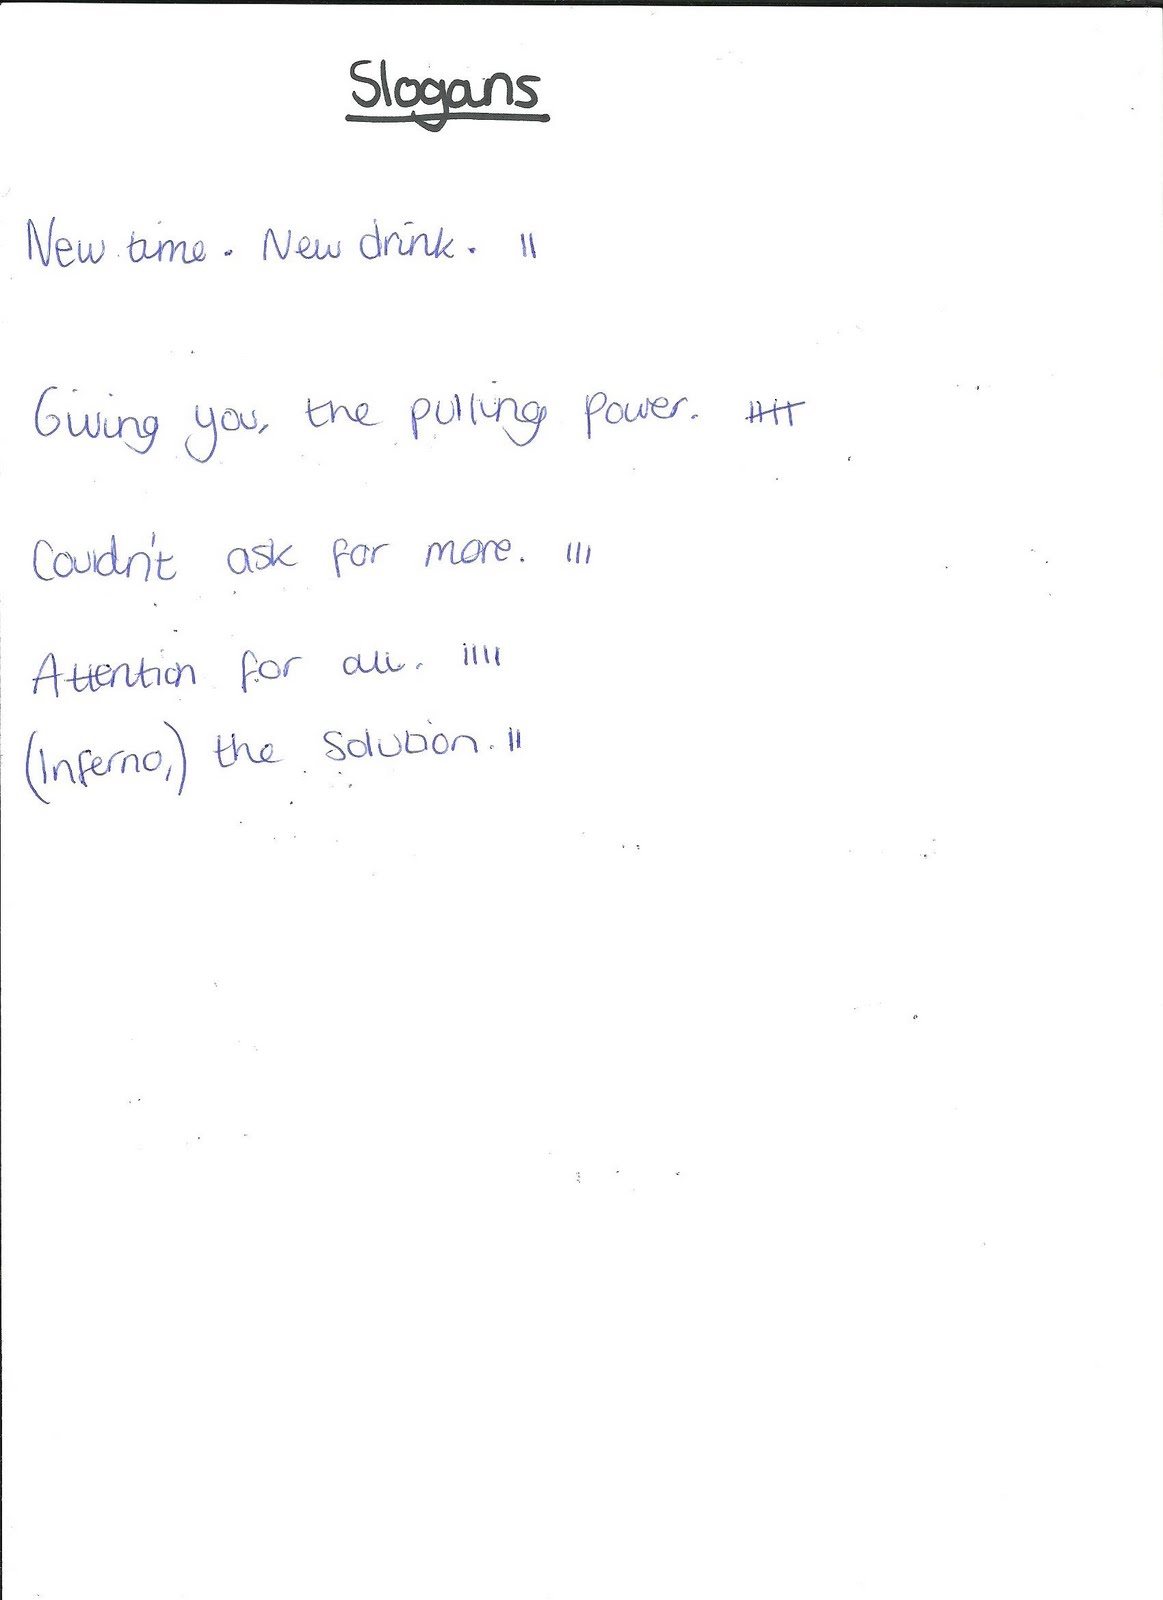 Slogans
New time. New drink. ||
Giving you, the pulling power. ||||
Couldn't ask for more. |||
Attention for all. ||||
(Inferno,) the solution. ||